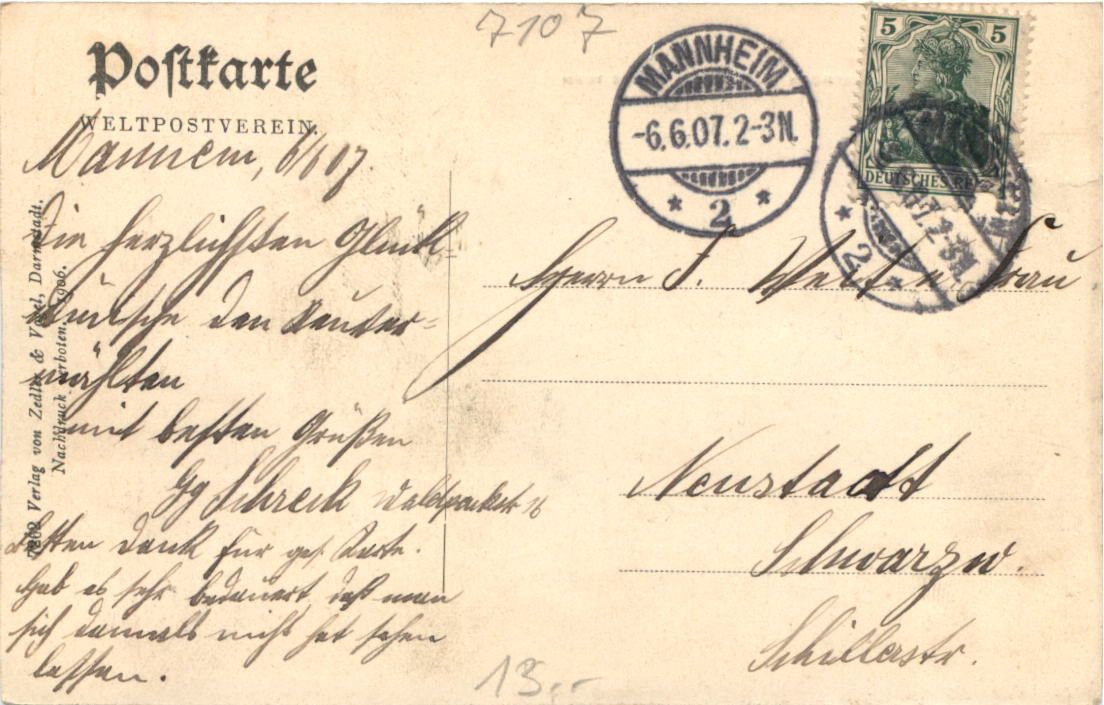 7107
Postkarte
WELTPOSTVEREIN.
MANNHEIM
-6.6.07.2-3N.
* 2 *
5 5
DEUTSCHES REICH
7.2-3N
* 2 *
Mannem, 6/6 07
Die herzlichsten Glück-
wünsche den Neuver-
mählten
mit besten Grüßen
Gg Schreck
Besten Dank für gef. Karte.
Hab es sehr bedauert, daß man
sich damals nicht hat sehen
lassen.
Herrn F. Frau
Neustadt
Schwarzw.
Schillerstr.
7262 Verlag von Zedler & Vogel, Darmstadt.
Nachdruck verboten. 1906.
13.--